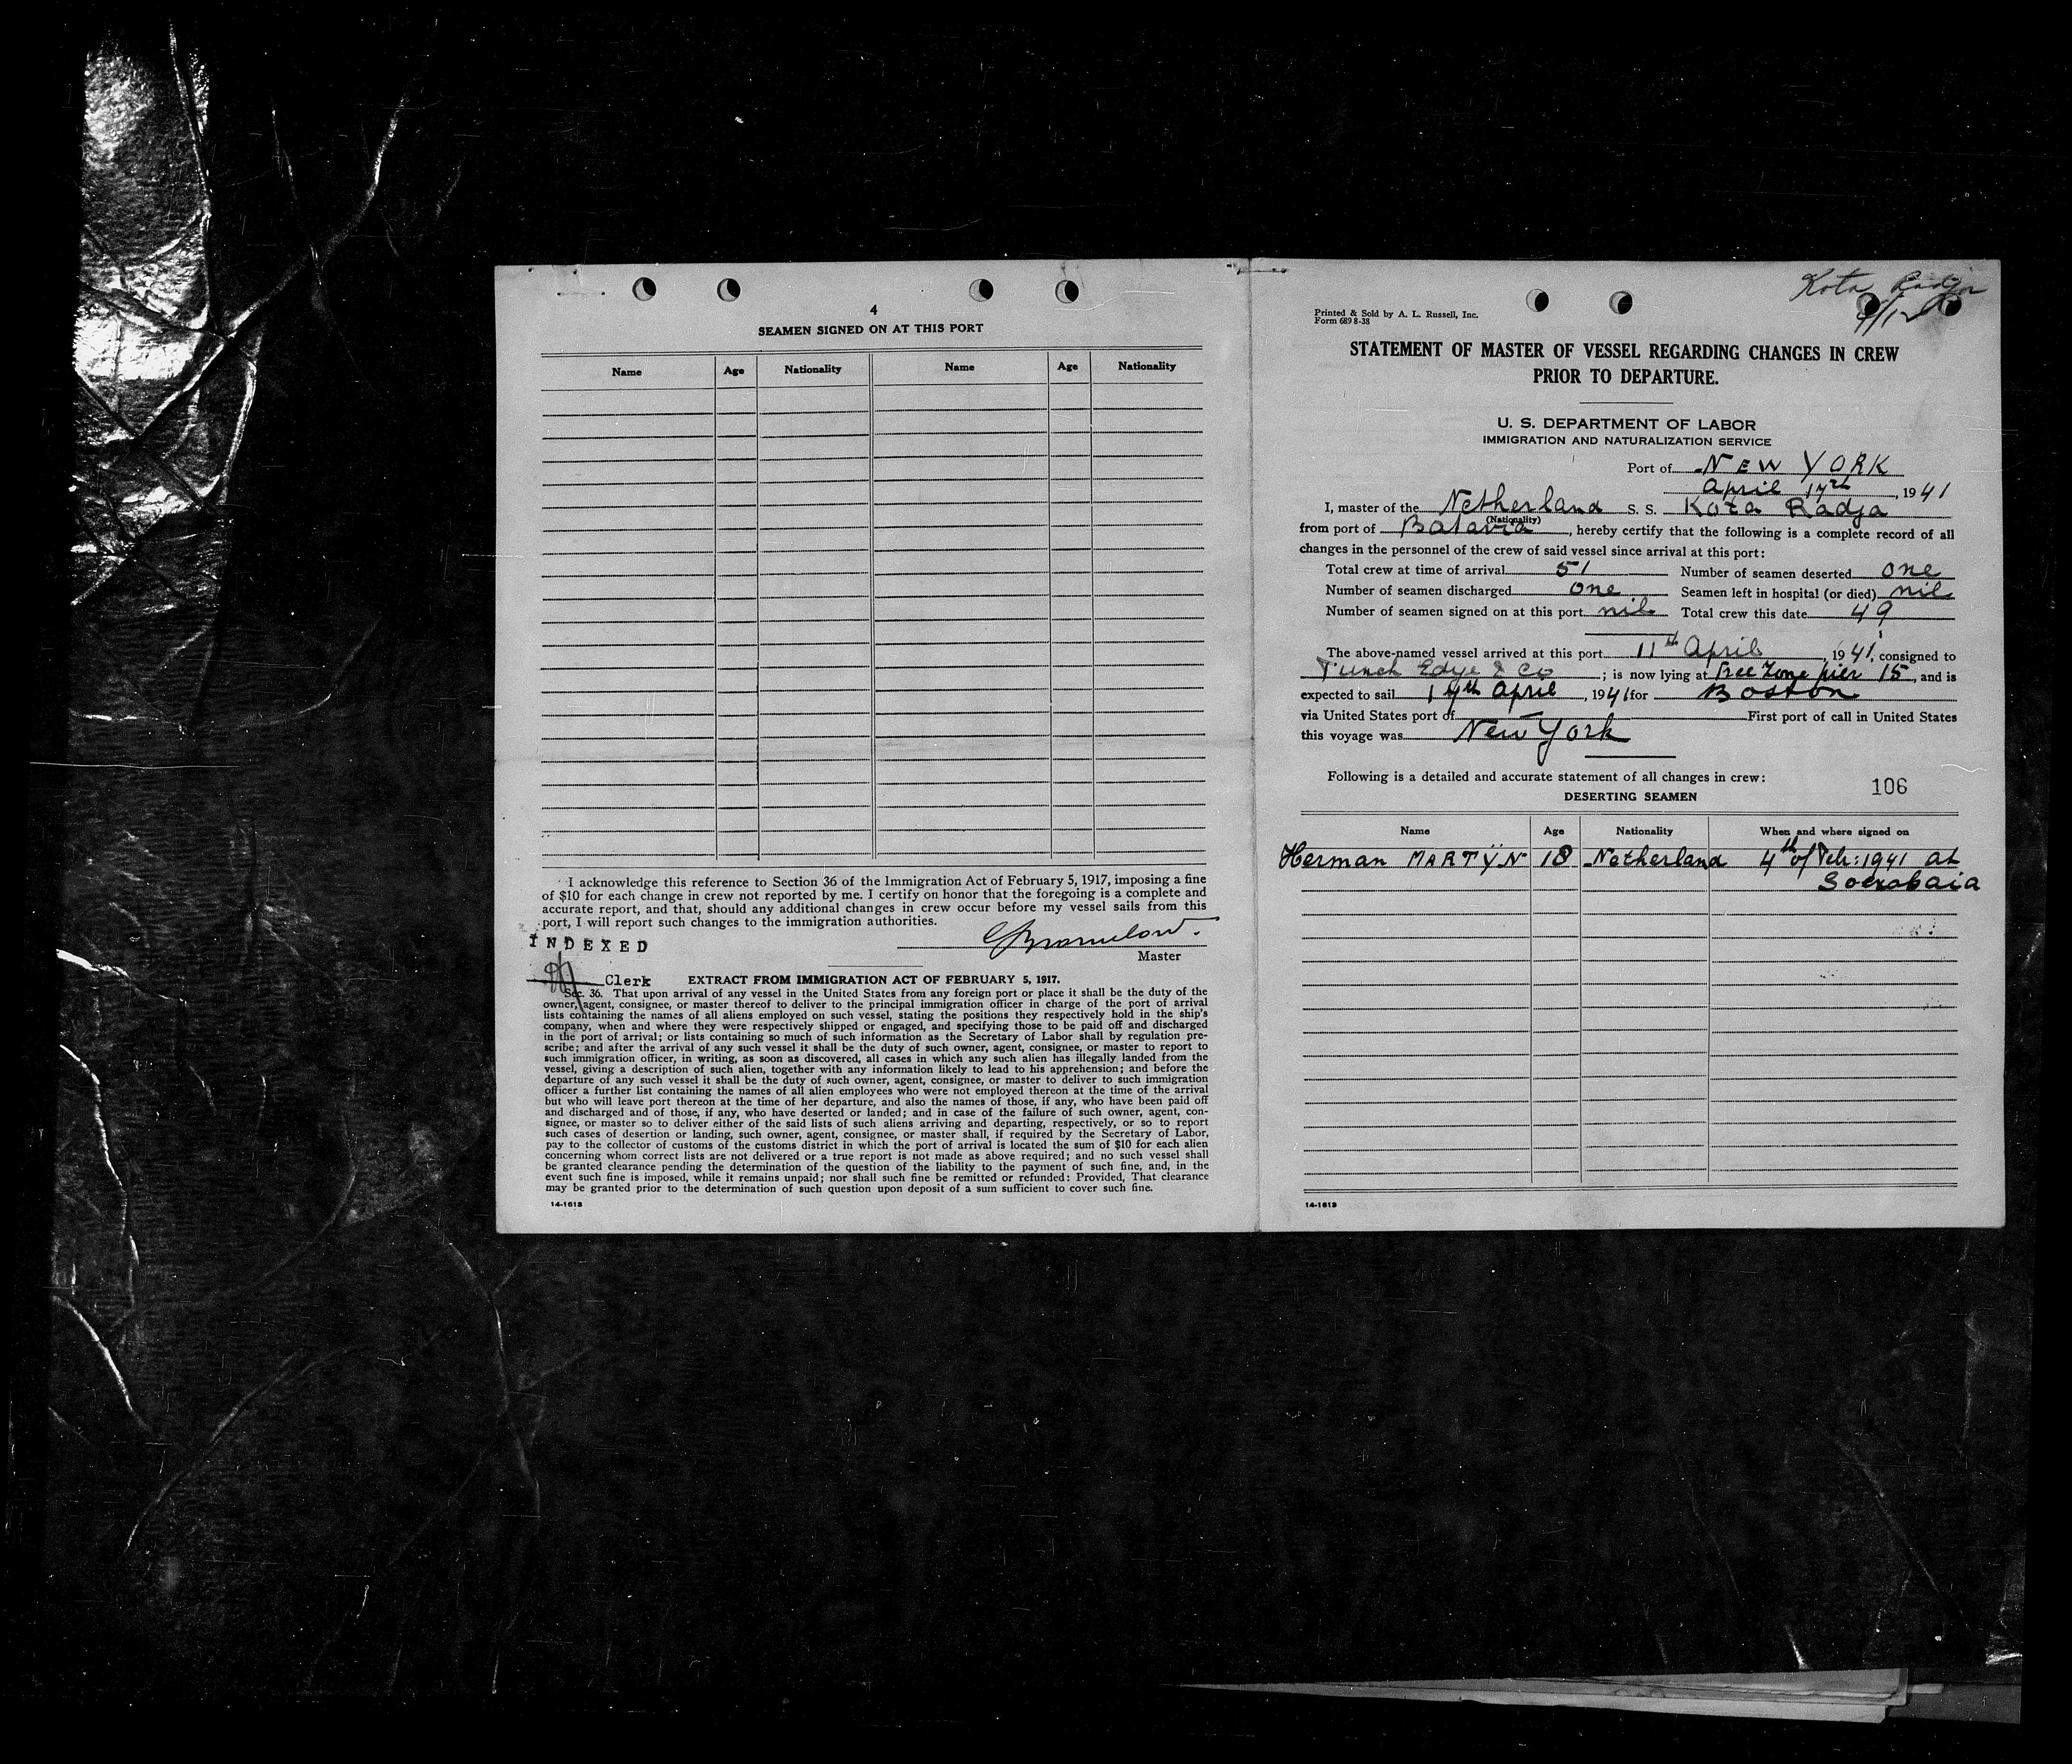 4
SEAMEN SIGNED ON AT THIS PORT
Name Age Nationality Name Age Nationality
I acknowledge this reference to Section 36 of the Immigration Act of February 5, 1917, imposing a fine
of $10 for each change in crew not reported by me. I certify on honor that the foregoing is a complete and
accurate report, and that, should any additional changes in crew occur before my vessel sails from this
port, I will report such changes to the immigration authorities.
INDEXED
Master
Clerk
EXTRACT FROM IMMIGRATION ACT OF FEBRUARY 5, 1917.
Sec. 36. That upon arrival of any vessel in the United States from any foreign port or place it shall be the duty of the
owner, agent, consignee, or master thereof to deliver to the principal immigration officer in charge of the port of arrival
lists containing the names of all aliens employed on such vessel, stating the positions they respectively hold in the ship's
company, when and where they were respectively shipped or engaged, and specifying those to be paid off and discharged
in the port of arrival; or lists containing so much of such information as the Secretary of Labor shall by regulation pre-
scribe; and after the arrival of any such vessel it shall be the duty of such owner, agent, consignee, or master to report to
such immigration officer, in writing, as soon as discovered, all cases in which any such alien has illegally landed from the
vessel, giving a description of such alien, together with any information likely to lead to his apprehension; and before the
departure of any such vessel it shall be the duty of such owner, agent, consignee, or master to deliver to such immigration
officer a further list containing the names of all alien employees who were not employed thereon at the time of the arrival
but who will leave port thereon at the time of her departure, and also the names of those, if any, who have been paid off
and discharged and of those, if any, who have deserted or landed; and in case of the failure of such owner, agent, con-
signee, or master so to deliver either of the said lists of such aliens arriving and departing, respectively, or so to report
such cases of desertion or landing, such owner, agent, consignee, or master shall, if required by the Secretary of Labor,
pay to the collector of customs of the customs district in which the port of arrival is located the sum of $10 for each alien
concerning whom correct lists are not delivered or a true report is not made as above required; and no such vessel shall
be granted clearance pending the determination of the question of the liability to the payment of such fine, and, in the
event such fine is imposed, while it remains unpaid; nor shall such fine be remitted or refunded: Provided, That clearance
may be granted prior to the determination of such question upon deposit of a sum sufficient to cover such fine.
14-1613
Kota Radja
Printed & Sold by A. L. Russell, Inc.
Form 689 8-38
STATEMENT OF MASTER OF VESSEL REGARDING CHANGES IN CREW
PRIOR TO DEPARTURE.
U. S. DEPARTMENT OF LABOR
IMMIGRATION AND NATURALIZATION SERVICE
Port of NEW YORK
April 17th, 1941
I, master of the Netherland S. S. Kota Radja
(Nationality)
from port of Batavia, hereby certify that the following is a complete record of all
changes in the personnel of the crew of said vessel since arrival at this port:
Total crew at time of arrival 51 Number of seamen deserted one
Number of seamen discharged one Seamen left in hospital (or died) nil
Number of seamen signed on at this port nil Total crew this date 49
The above-named vessel arrived at this port 11th April, 1941, consigned to
Edye & Co; is now lying at Free Zone pier 15, and is
expected to sail 17th April, 1941 for Boston
via United States port of — First port of call in United States
this voyage was New York
Following is a detailed and accurate statement of all changes in crew:
106
DESERTING SEAMEN
Name Age Nationality When and where signed on
Herman MARTŸN 18 Netherland 4th of Feb: 1941 at
Soerabaia
14-1613